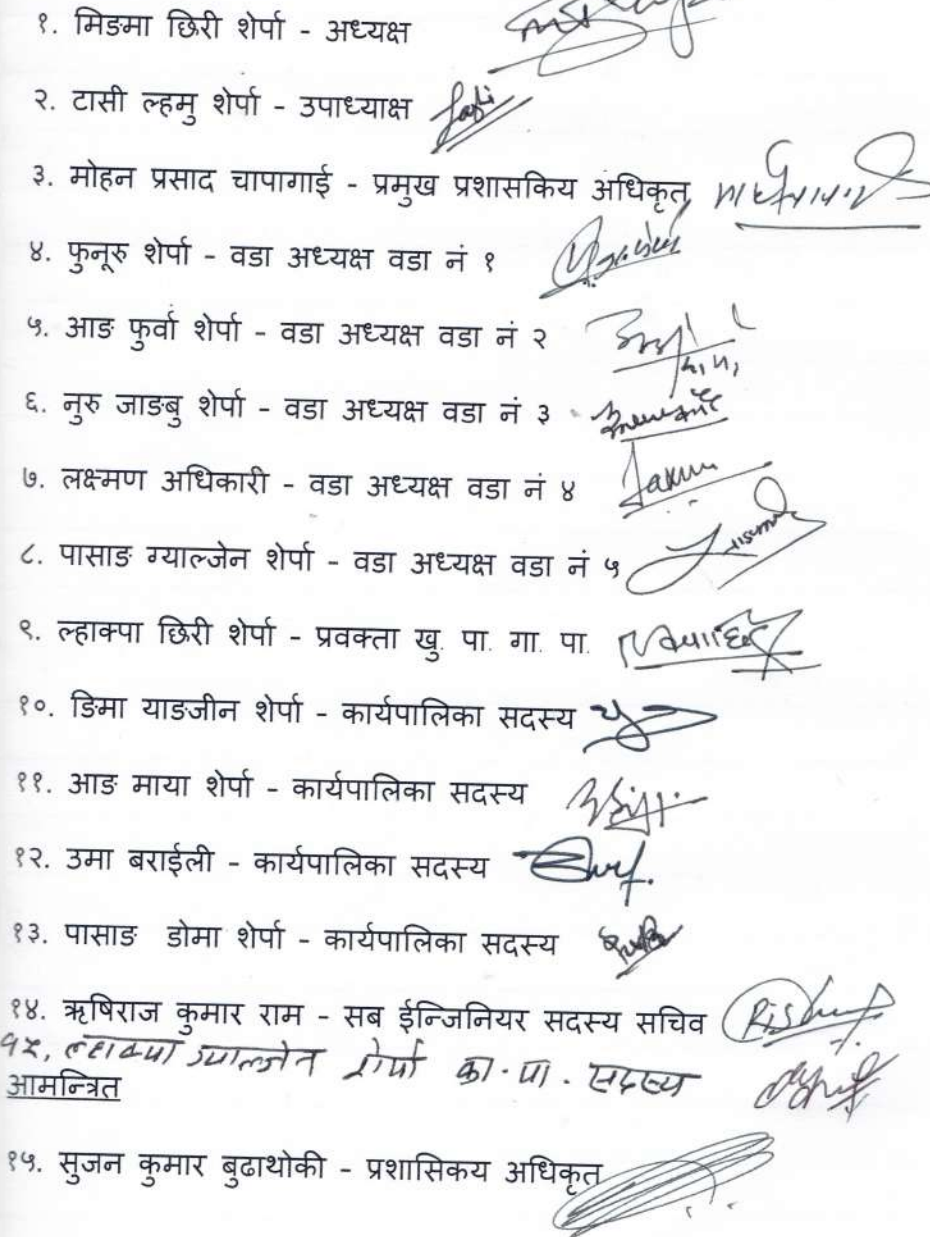 १. मिङमा छिरी शेर्पा - अध्यक्ष
२. टासी ल्हमु शेर्पा - उपाध्याक्ष
३. मोहन प्रसाद चापागाई - प्रमुख प्रशासकिय अधिकृत
४. फुनूरु शेर्पा - वडा अध्यक्ष वडा नं १
५. आङ फुर्वा शेर्पा - वडा अध्यक्ष वडा नं २
६. नुरु जाङबु शेर्पा - वडा अध्यक्ष वडा नं ३
७. लक्ष्मण अधिकारी - वडा अध्यक्ष वडा नं ४
८. पासाङ ग्याल्जेन शेर्पा - वडा अध्यक्ष वडा नं ५
९. ल्हाक्पा छिरी शेर्पा - प्रवक्ता खु. पा. गा. पा.
१०. ङिमा याङजीन शेर्पा - कार्यपालिका सदस्य
११. आङ माया शेर्पा - कार्यपालिका सदस्य
१२. उमा बराईली - कार्यपालिका सदस्य
१३. पासाङ डोमा शेर्पा - कार्यपालिका सदस्य
१४. ऋषिराज कुमार राम - सब ईन्जिनियर सदस्य सचिव
१५. ल्हाक्पा ग्याल्जेन शेर्पा का. पा. सदस्य
आमन्त्रित
१५. सुजन कुमार बुढाथोकी - प्रशासिकय अधिकृत